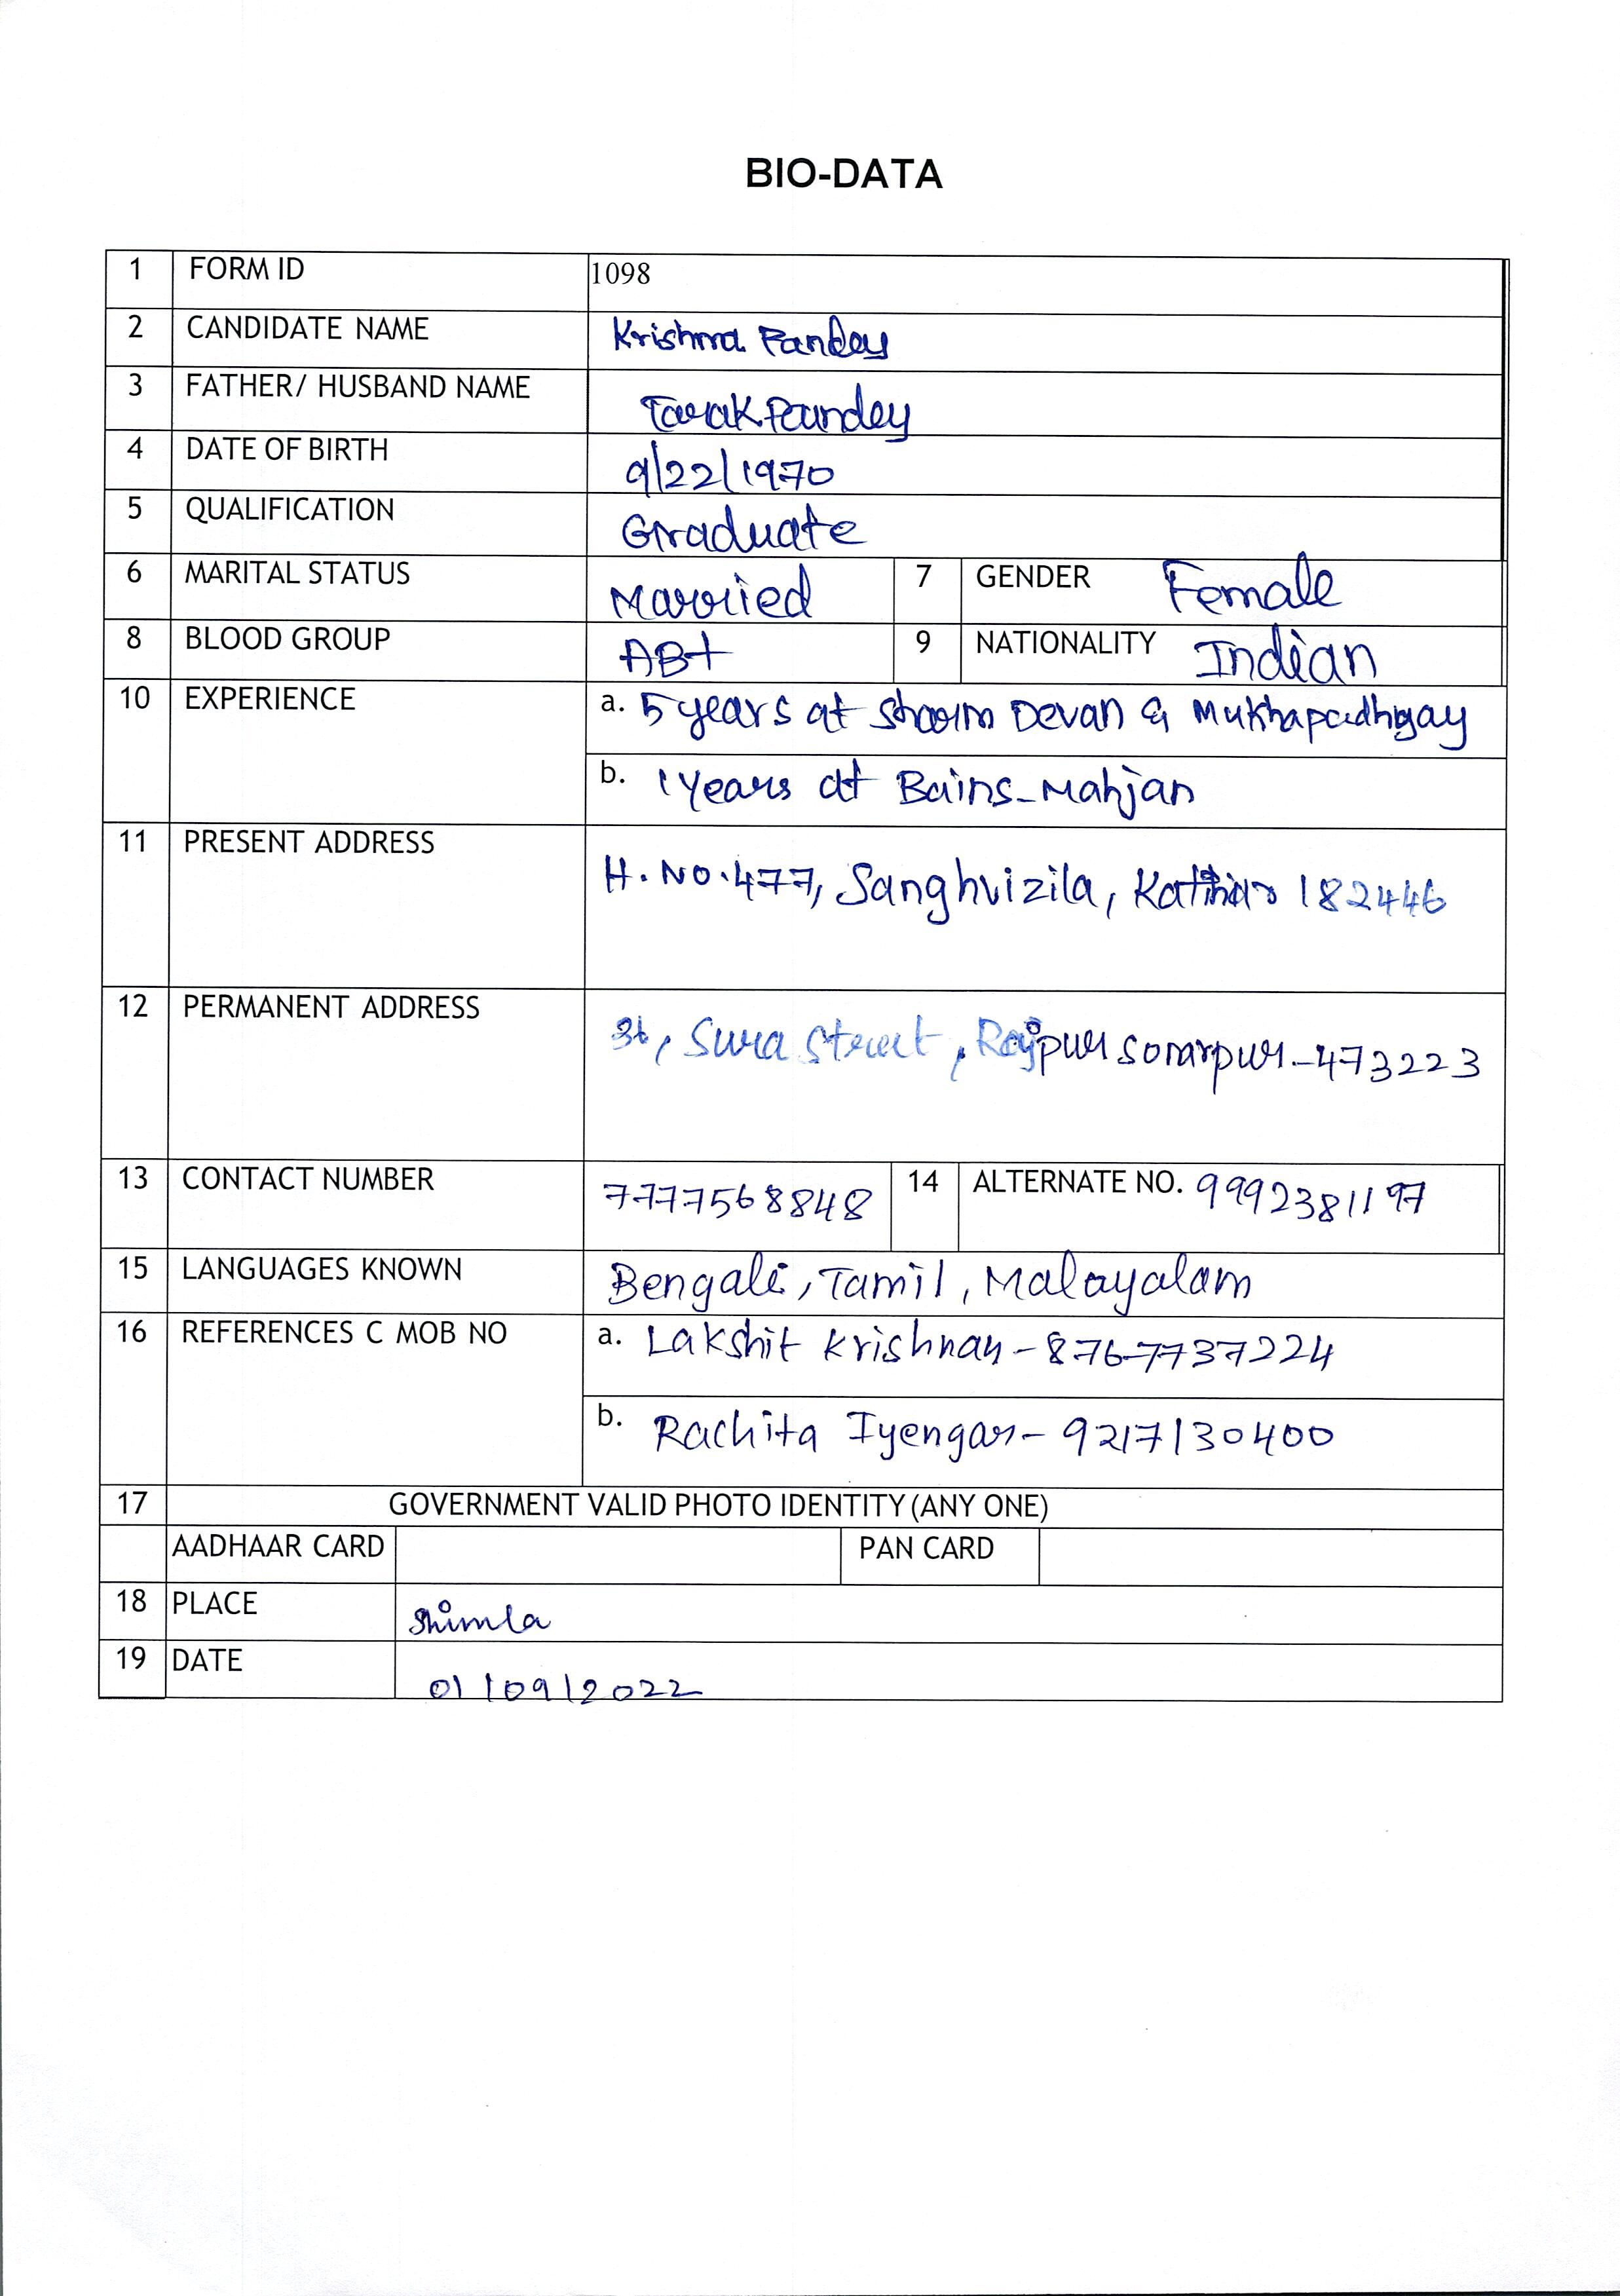 BIO-DATA
1 FORM ID 1098
2 CANDIDATE NAME Krishna Pandey
3 FATHER/ HUSBAND NAME Tarak Pandey
4 DATE OF BIRTH 9/22/1970
5 QUALIFICATION Graduate
6 MARITAL STATUS Married 7 GENDER Female
8 BLOOD GROUP AB+ 9 NATIONALITY Indian
10 EXPERIENCE a. 5 years at Devan & Mukhapadhyay
b. 1 Years at Bains-Mahjan
11 PRESENT ADDRESS H.NO.477, Sanghvizila, Katihar 182446
12 PERMANENT ADDRESS Sura Street, Rajpur sonarpur-473223
13 CONTACT NUMBER 7777568848 14 ALTERNATE NO. 9992381197
15 LANGUAGES KNOWN Bengali, Tamil, Malayalam
16 REFERENCES C MOB NO a. Lakshit Krishnan-8767737224
b. Rachita Iyengar-9217130400
17 GOVERNMENT VALID PHOTO IDENTITY (ANY ONE)
AADHAAR CARD PAN CARD
18 PLACE Shimla
19 DATE 01/09/2022